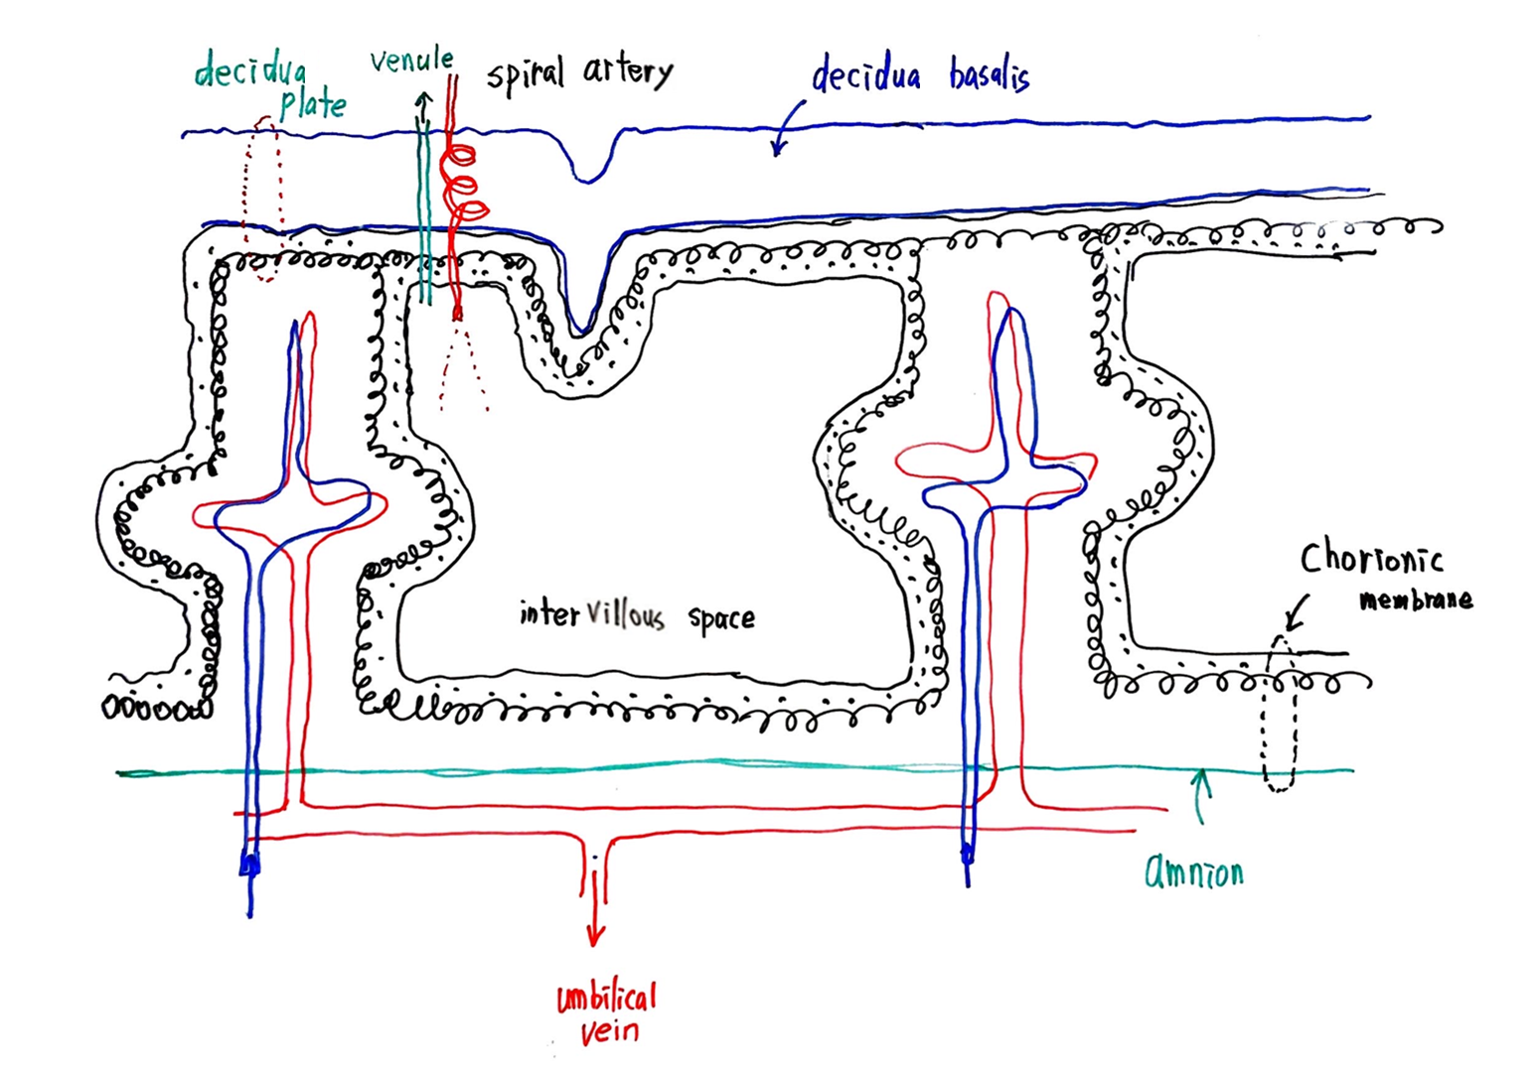 decidua
plate
venule
spiral artery
decidua basalis
intervillous space
Chorionic
membrane
amnion
umbilical
vein